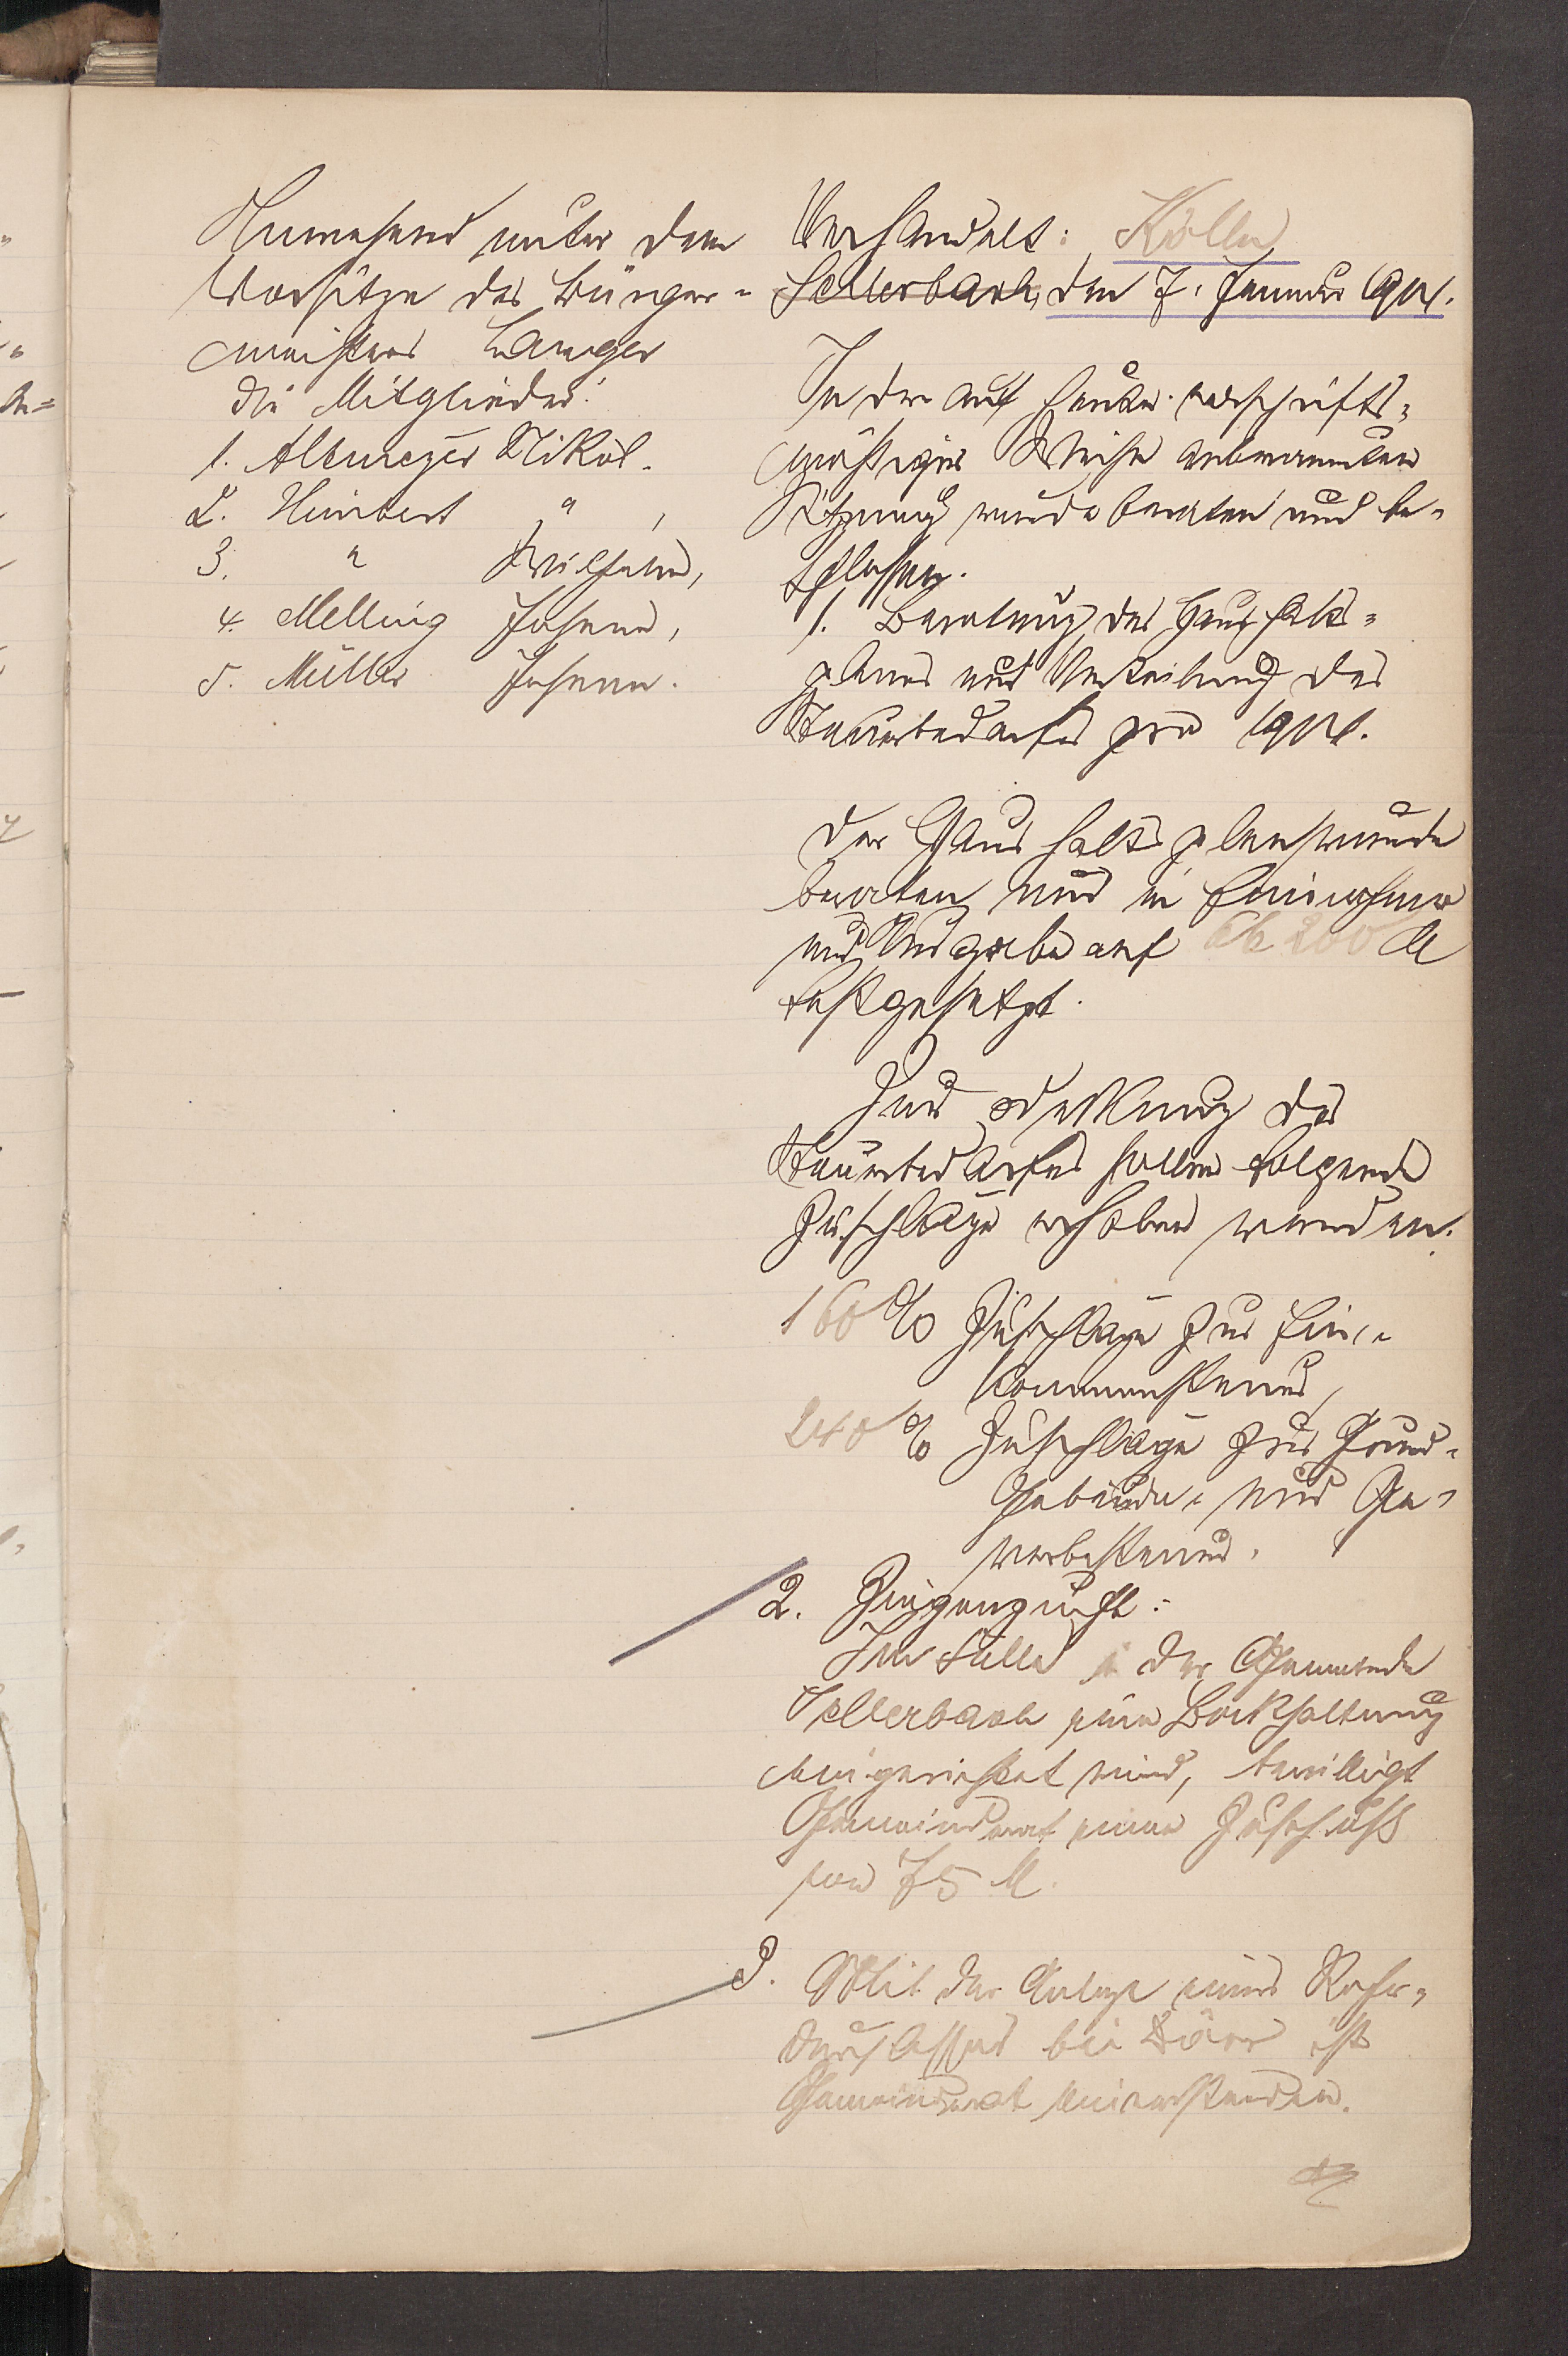 Anwesend unter dem
Vorsitze des Bürger-
meisters Lamger
die Mitglieder:
1. Altmeyer Nikol.
2. Himbert " ,
3. " Wilhelm,
4. Melling Johann,
5. Müller Johann.
Verhandelt: Kölln
Sellerbach, den 7. Januar 1904.
In der auf heute vorschrifts-
mäßiger Weise anberaumten
Sitzung wurde beraten und be-
schlossen.
1. Beratung des Haushalts-
planes und Verteilung des
Steuerbedarfs pro 1904.
Der Haushaltsplan wurde
beraten und in Einnahme
und Ausgabe auf 200 M
festgesetzt.
Zur Deckung des
Steuerbedarfes sollen folgende
Zuschläge erhoben werden.
160 % Zuschläge zur Ein-
kommensteuer,
240 % Zuschläge zur Grund-
Gebäude- und Ge-
werbesteuer.
2. Ziegenzucht:
Im Falle in der Gemeinde
Sellerbach eine Bockhaltung
eingerichtet wird, bewilligt
Gemeinderat einen Zuschuß
von 75 M.
3. Mit der Anlage eines Rohr-
durchlasses bei Dörr ist
Gemeinderat einverstanden.